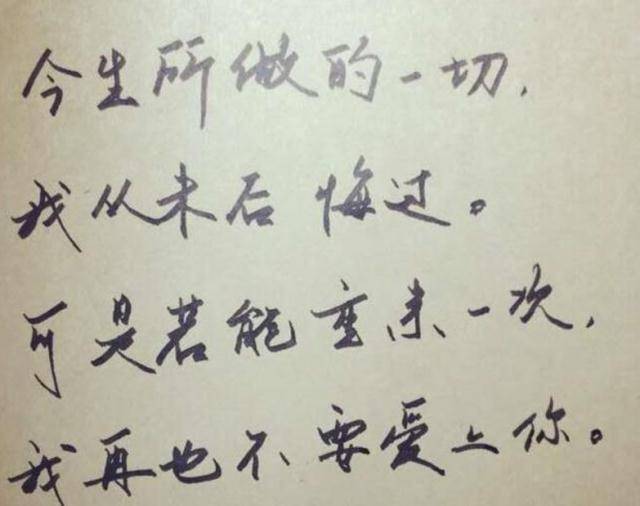 今生所做的一切,
我从未后悔过。
可是若能重来一次,
我再也不要爱上你。